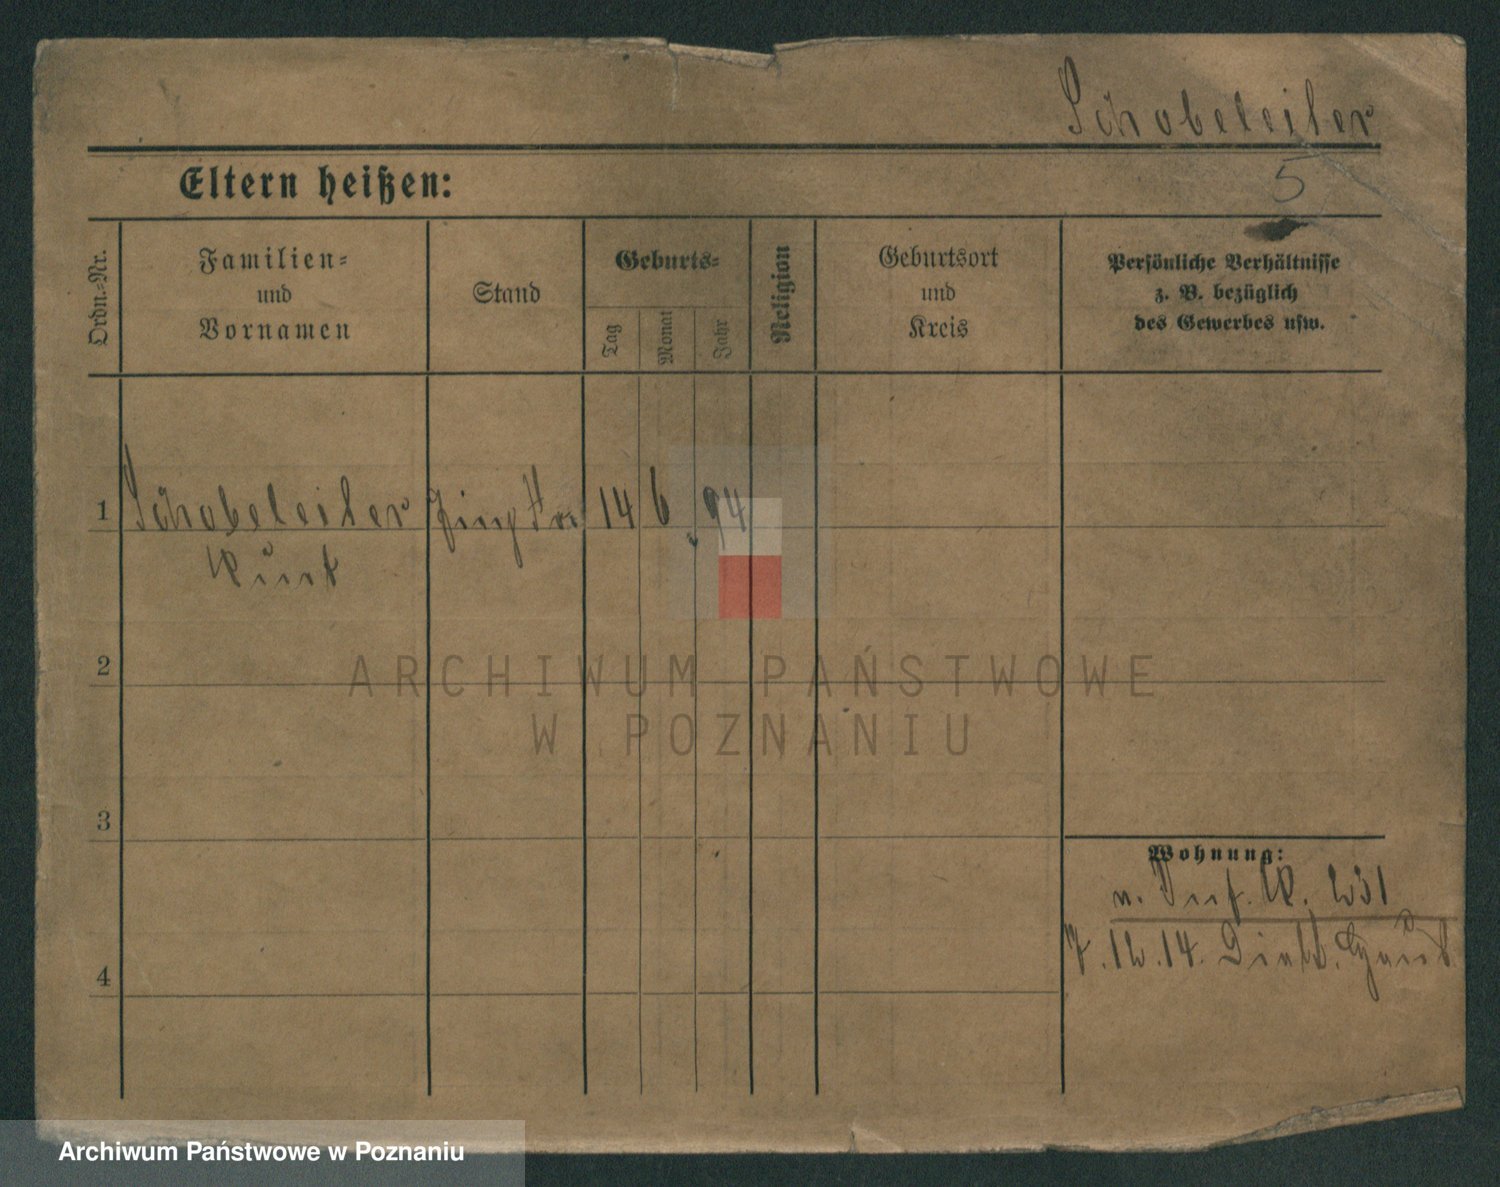 Schobeleiler
Eltern heißen:
5
Ordn.-Nr.
Familien-
und
Vornamen
Stand
Geburts-
Tag
Monat
Jahr
Religion
Geburtsort
und
Kreis
Persönliche Verhältnisse
z. B. bezüglich
des Gewerbes usw.
1 Schobeleiler 14 6. 94
Kurt
2
3
4
Wohnung:
n. Inf. R. 231
7. 12. 14.
ARCHIWUM PAŃSTWOWE
W POZNANIU
Archiwum Państwowe w Poznaniu